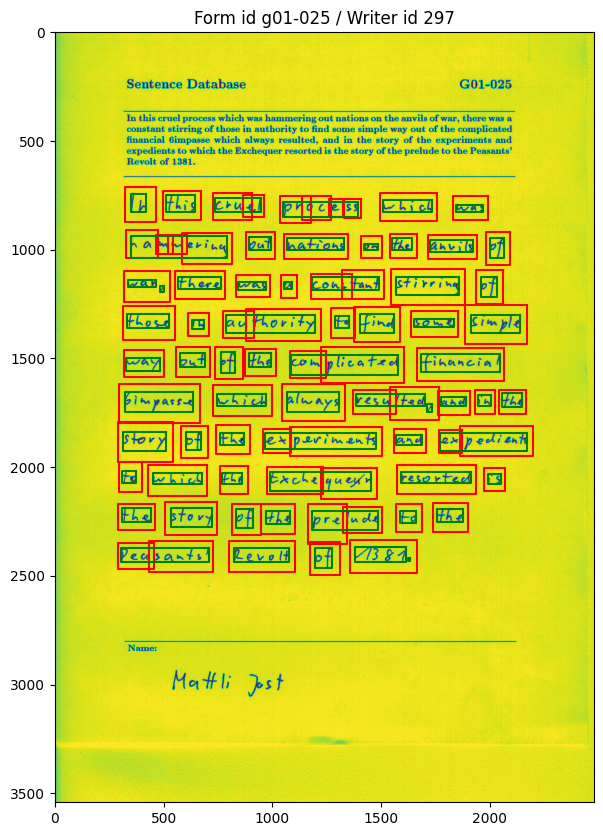 Form id g01-025 / Writer id 297
0
Sentence Database G01-025
In this cruel process which was hammering out nations on the anvils of war, there was a
500
constant stirring of those in authority to find some simple way out of the complicated
financial 6impasse which always resulted, and in the story of the experiments and
expedients to which the Exchequer resorted is the story of the prelude to the Peasants'
Revolt of 1381.
In this cruel process which was
1000
hammering out nations on the anvils of
war, there was a constant stirring of
those in authority to find some simple
1500
way out of the complicated financial
6impasse which always resulted, and in the
story of the experiments and expedients
2000
to which the Exchequer resorted is
the story of the prelude to the
Peasants' Revolt of 1381.
2500
Name:
3000
Mattli Jost
3500
0 500 1000 1500 2000